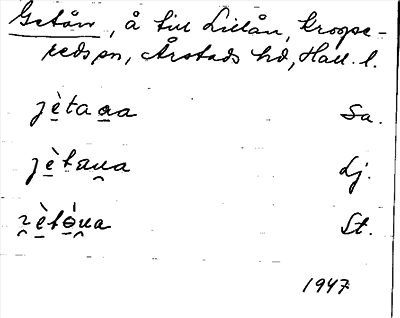 Getån, å till Lillån, Krogse-
reds sn, Årstads hd, Hall. l.
jètaaa Sa.
jètaua Lj.
Lt.
1947